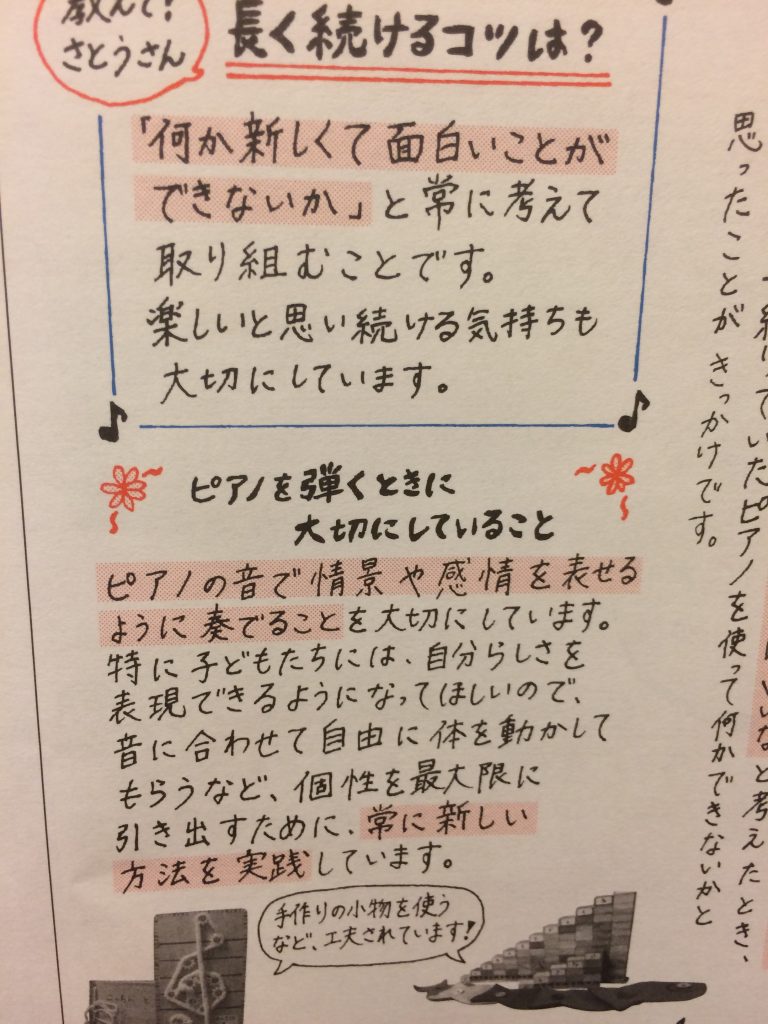 教えて!
さとうさん
長く続けるコツは?
「何か新しくて面白いことが
できないか」と常に考えて
取り組むことです。
楽しいと思い続ける気持ちも
大切にしています。
ピアノを弾くときに
大切にしていること
ピアノの音で情景や感情を表せる
ように奏でることを大切にしています。
特に子どもたちには、自分らしさを
表現できるようになってほしいので、
音に合わせて自由に体を動かして
もらうなど、個性を最大限に
引き出すために、常に新しい
方法を実践しています。
手作りの小物を使う
など、工夫されています!
いいなと考えたとき、
ていたピアノを使って何かできないかと
思ったことがきっかけです。